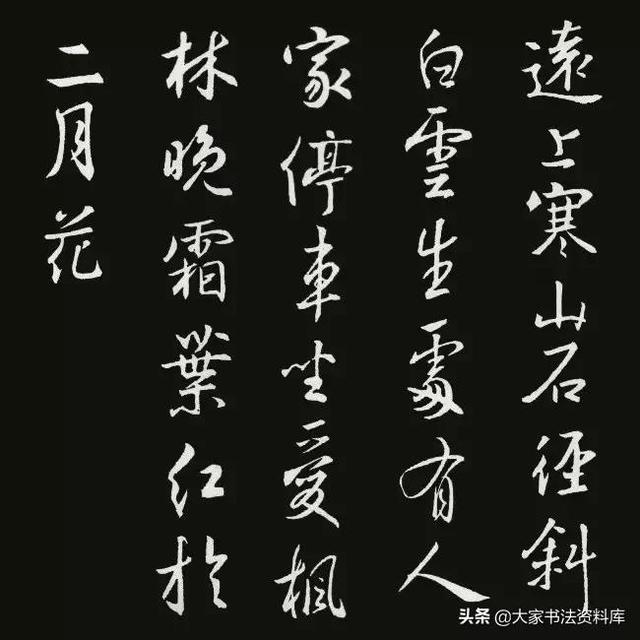 遠上寒山石徑斜
白雲生處有人
家停車坐愛楓
林晚霜葉紅於
二月花
头条 @大家书法资料库